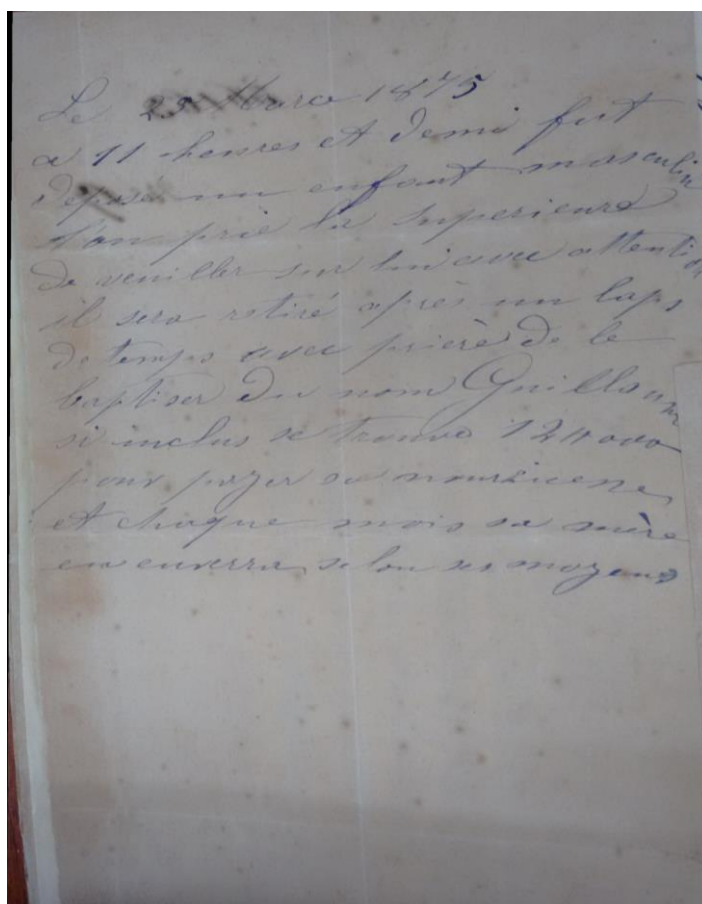 Le 25 Marco 1875
a 11 heures et demi fut
deposé un enfant masculin
l'on prie la superieure
de veuiller sur lui avec attention
il sera retiré après un laps
de temps avec prière de le
baptiser du nom Guillaume
si inclus se trouve 12#000
pour payer sa nourricene
et chaque mois sa mère
en enverra, selon ses moyens